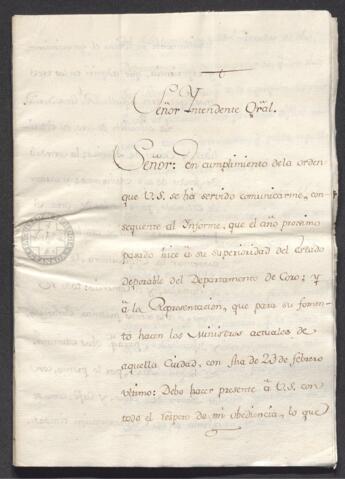 Señor Yntendente Gral.
Señor: En cumplimiento de la orden
que V.S. se ha servido comunicarme, con-
seguente al Informe, que el año proximo
pasado hice à su superioridad del estado
deporable del Departamento de Coro; y
à la Representacion, que para su fomen-
to hacen los Ministros actuales de
aquella Ciudad, con fha de 23 de febrero
ultimo: Debo hacer presente à V.S. con
todo el respeto de mi obediencia, lo que